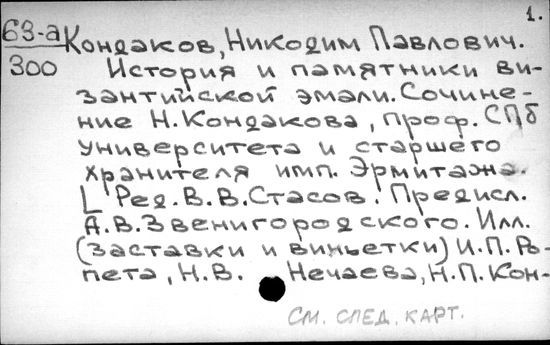 1.
63-а
300
Кондаков, Никодим Павлович.
История и памятники ви-
зантийской эмали. Сочине-
ние Н. Кондакова, проф. СПб
университета и старшего
хранителя имп. Эрмитажа.
[ Ред. В.В. Стасов. Предисл.
А.В. Звенигородского. Илл.
(заставки и виньетки) И.П. Ро-
пета, Н.В. Нечаева, Н.П. Кон-
СМ. СЛЕД. КАРТ.